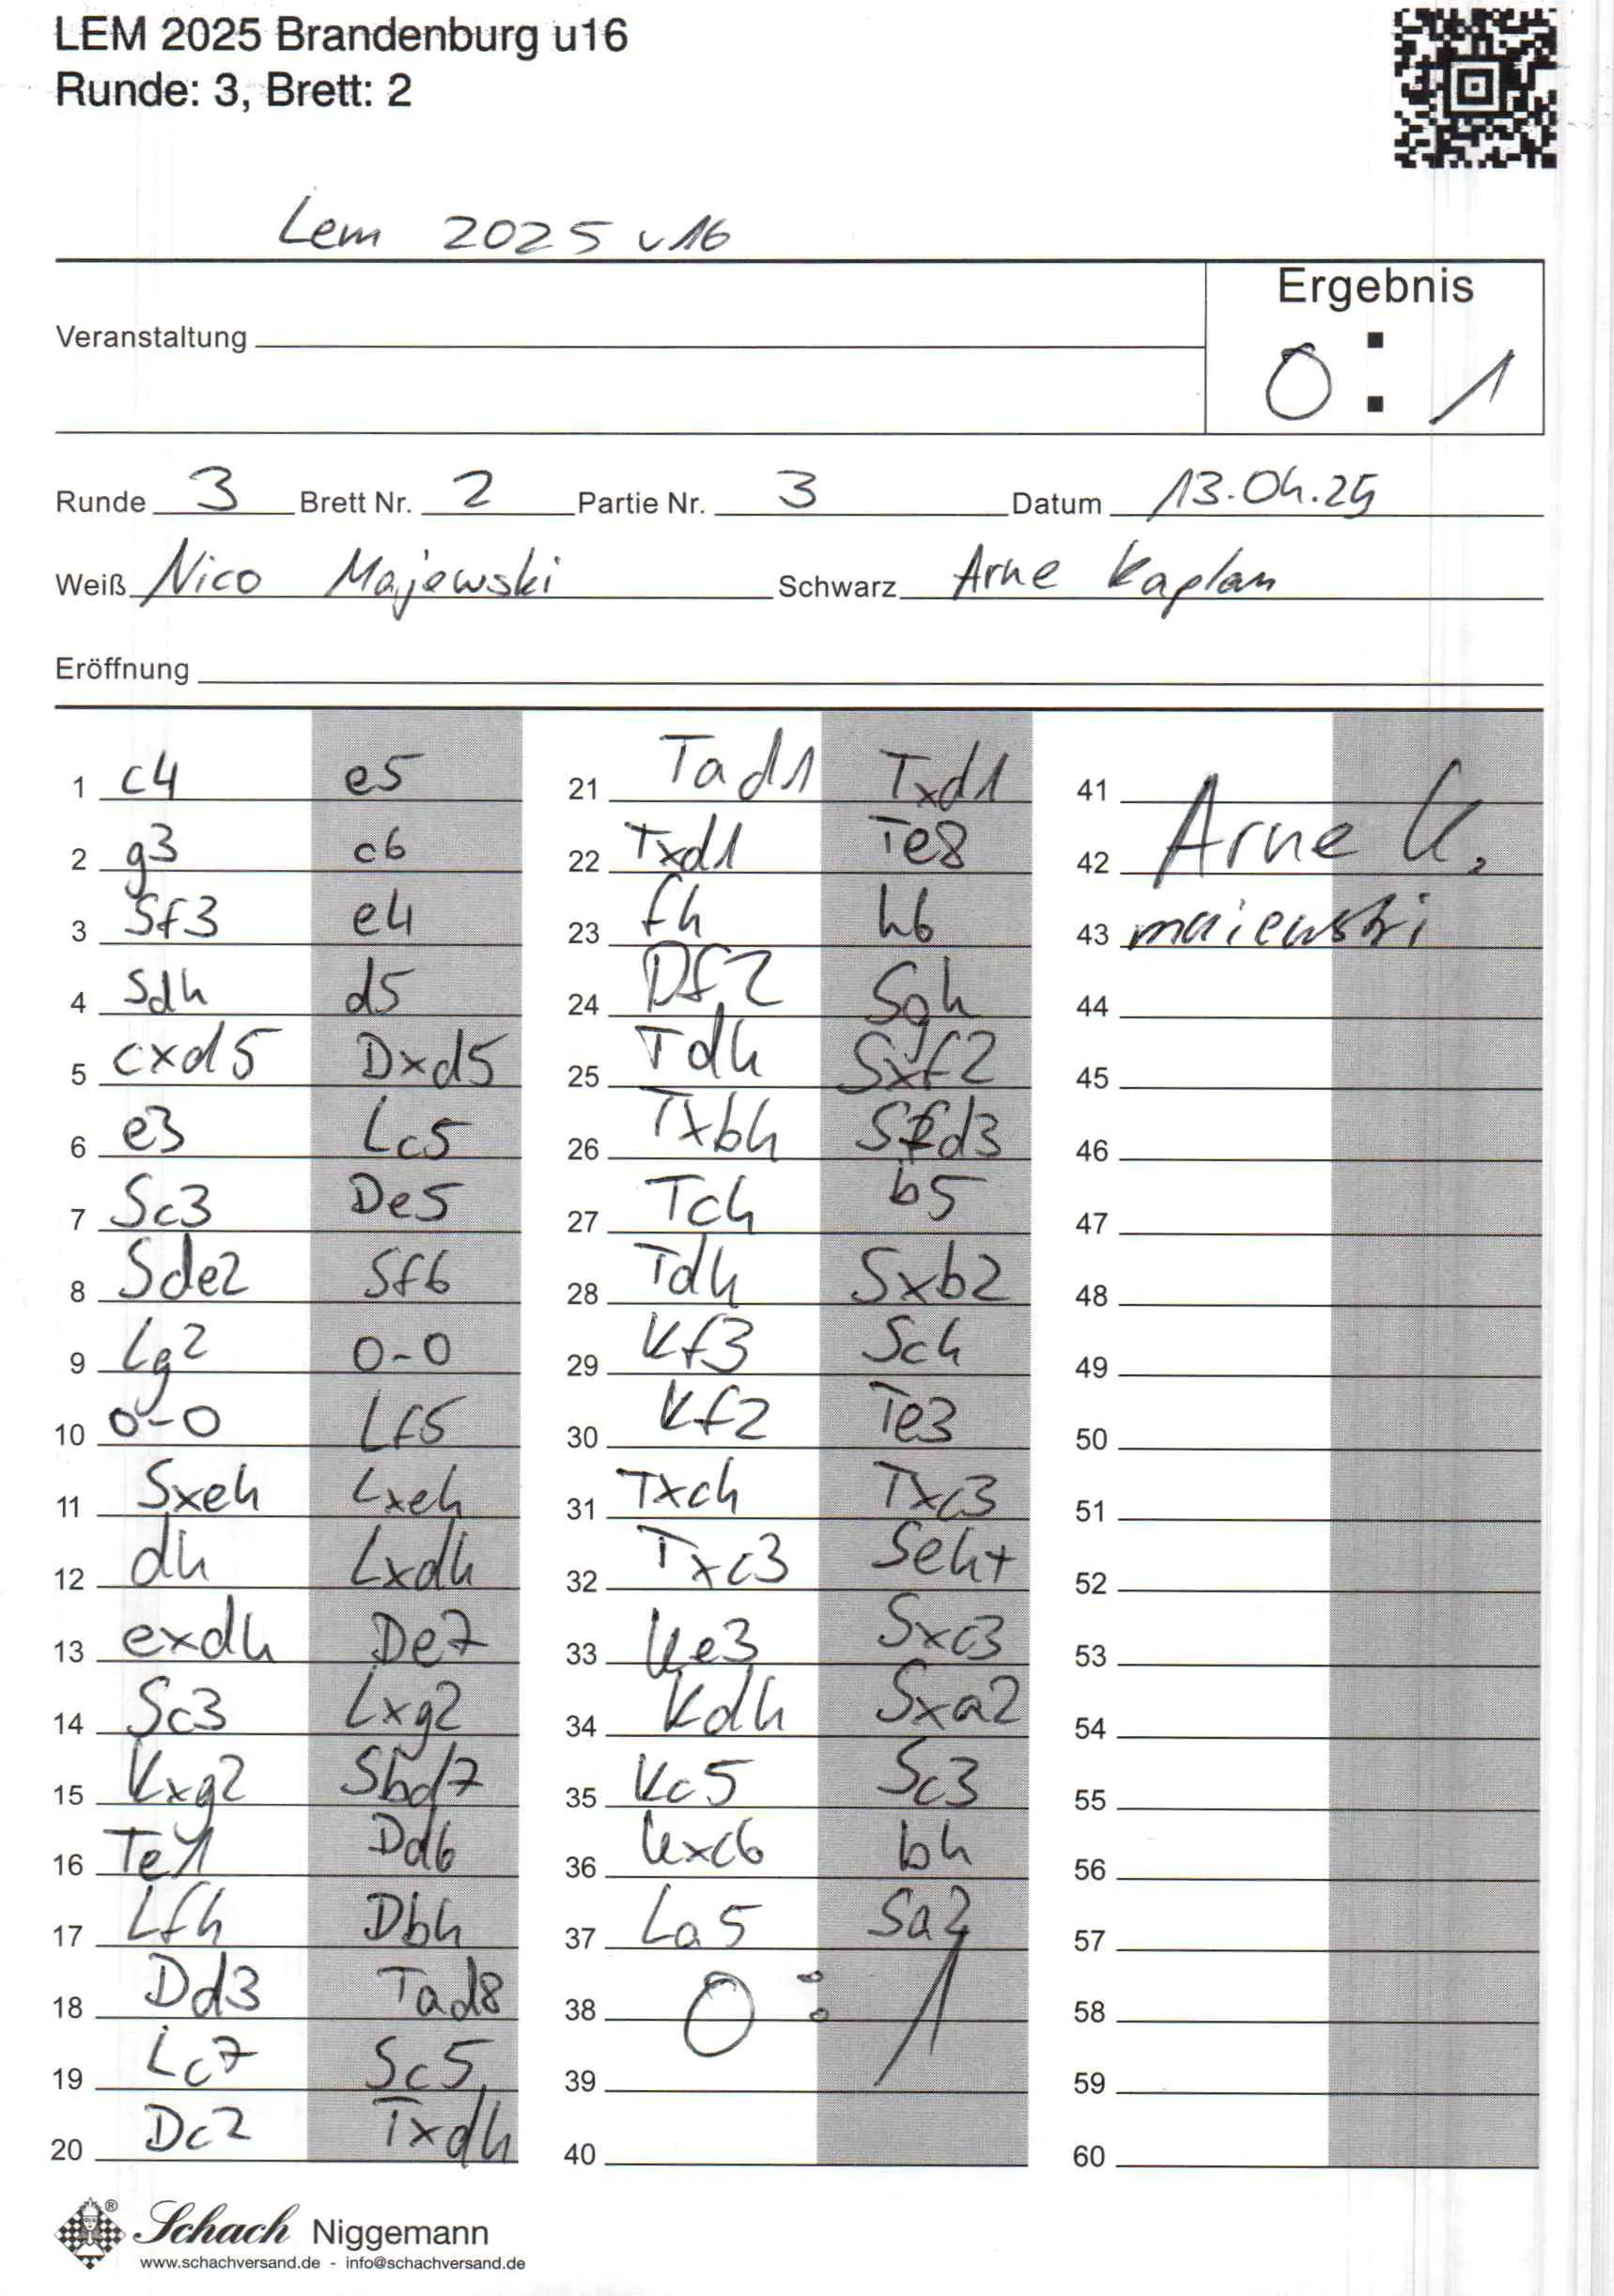 LEM 2025 Brandenburg u16
Runde: 3, Brett: 2
Lem 2025 u16
Veranstaltung
Ergebnis
0 : 1
Runde 3 Brett Nr. 2 Partie Nr. 3 Datum 13.04.25
Weiß Nico Majewski Schwarz Arne Kaplan
Eröffnung
1 c4 e5
2 g3 c6
3 Sf3 e4
4 Sd4 d5
5 cxd5 Dxd5
6 e3 Lc5
7 Sc3 De5
8 Sde2 Sf6
9 Lg2 0-0
10 0-0 Lf5
11 Sxe4 Lxe4
12 d4 Lxd4
13 exd4 De7
14 Sc3 Lxg2
15 Kxg2 Sbd7
16 Te1 Dd6
17 Lf4 Db4
18 Dd3 Tad8
19 Lc7 Sc5
20 Dc2 Txd4
21 Tad1 Txd1
22 Txd1 Te8
23 f4 h6
24 Df2 Sg4
25 Td4 Sxf2
26 Txb4 Sfd3
27 Tc4 b5
28 Td4 Sxb2
29 Kf3 Sc4
30 Kf2 Te3
31 Txc4 Txc3
32 Txc3 Se4+
33 Ke3 Sxc3
34 Kd4 Sxa2
35 Kc5 Sc3
36 Kxc6 b4
37 La5 Sa2
38 0 : 1
39
40
41 Arne K.
42
43 maiewski
44
45
46
47
48
49
50
51
52
53
54
55
56
57
58
59
60
Schach Niggemann
www.schachversand.de - info@schachversand.de